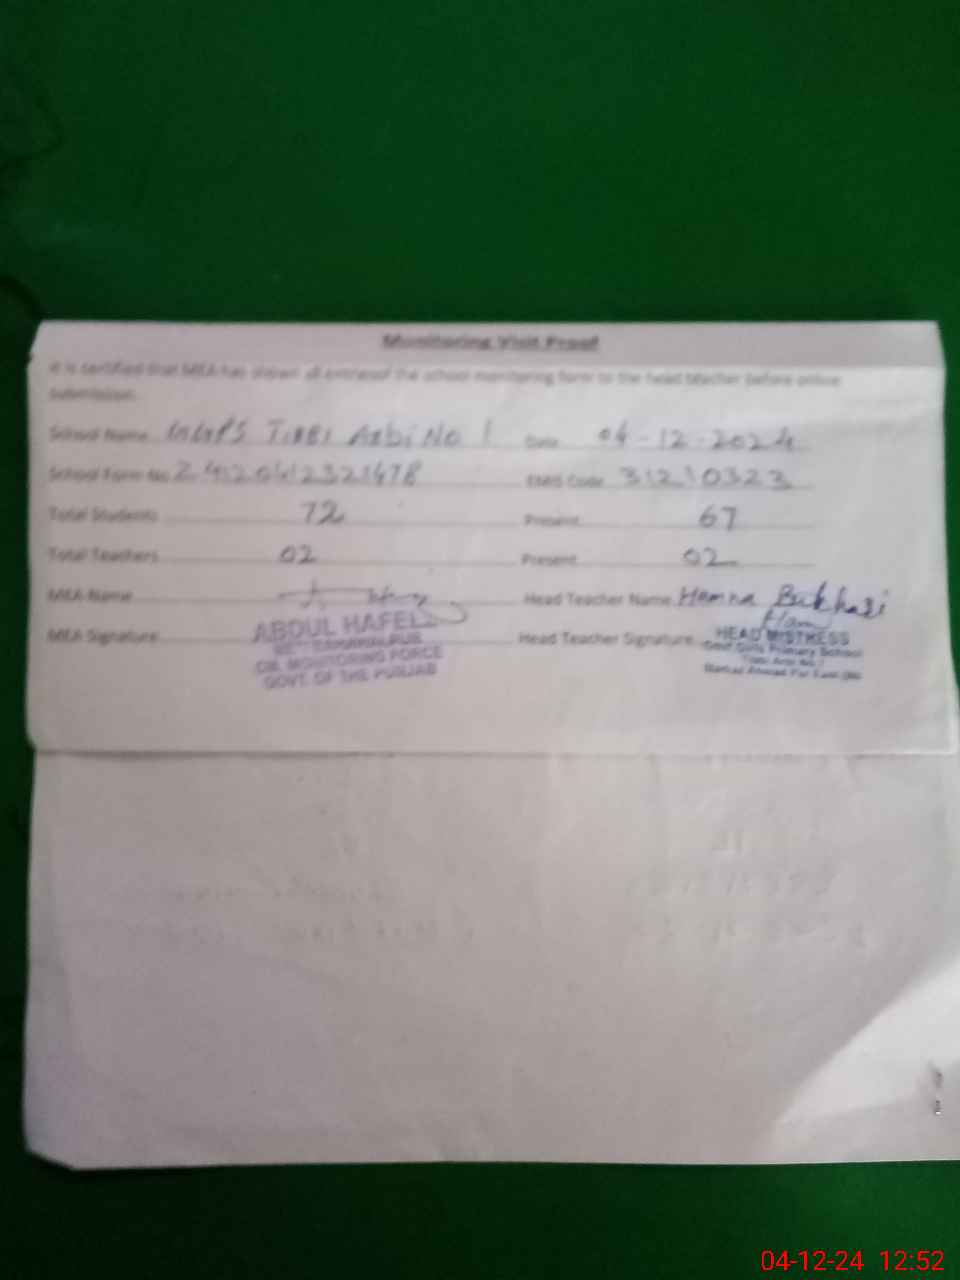 Monitoring Visit Proof
It is certified that MEA has shown all entries of the school monitoring form to the head teacher before online
submission.
School Name GGPS Tibbi Arbi No 1 Date 04-12-2024
School Form No. EMIS Code 31210323
Total Students 72 Present 67
Total Teachers 02 Present 02
MEA Name Head Teacher Name Hamna Bukhari
MEA Signature Head Teacher Signature
ABDUL HAFEEZ
MONITORING FORCE
GOVT. OF THE PUNJAB
HEAD MISTRESS
Govt Girls Primary School
04-12-24 12:52